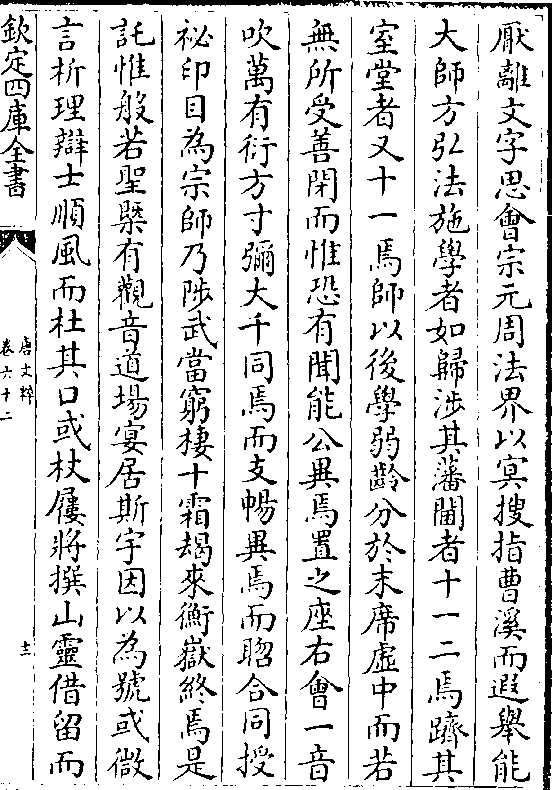 厭離文字思會宗元周法界以冥搜指曹溪而遐舉能
大師方弘法施學者如歸涉其藩閫者十一二焉躋其
室堂者又十一焉師以後學弱齡分於末席虛中而若
無所受善閉而惟恐有聞能公異焉置之座右會一音
吹萬有衍方寸彌大千同焉而支暢異焉而脗合同授
祕印目為宗師乃陟武當窮棲十霜朅來衡嶽終焉是
託惟般若聖槩有觀音道場宴居斯宇因以為號或微
言析理辯士順風而杜其口或杖屨將撰山靈借留而
欽定四庫全書
唐文粹
卷六十二
十三